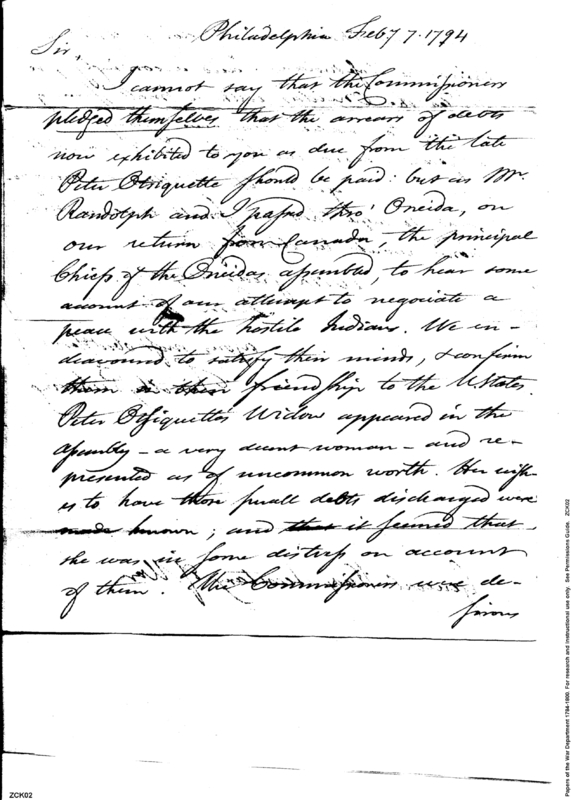 Philadelphia Feby 7. 1794
Sir,
I cannot say that the Commissioners
pledged themselves that the arrears of debts
now exhibited to you as due from the late
Peter Otsiquette should be paid: but as Mr.
Randolph and I passed thro' Oneida, on
our return from Canada, the principal
Chiefs of the Oneidas assembled, to hear some
account of our attempt to negociate a
peace with the hostile Indians. We en-
deavoured to satisfy their minds, & confirm
them in their friendship to the U. States.
Peter Otsiquette's Widow appeared in the
assembly - a very decent woman - and re-
presented as of uncommon worth. Her wish-
es to have those small debts discharged were
made known; and that it seemed that
she was in some distress on account
of them. The Commissioners were de-
sirous
ZCK02
Papers of the War Department 1784-1800. For research and instructional use only. See Permissions Guide. ZCK02